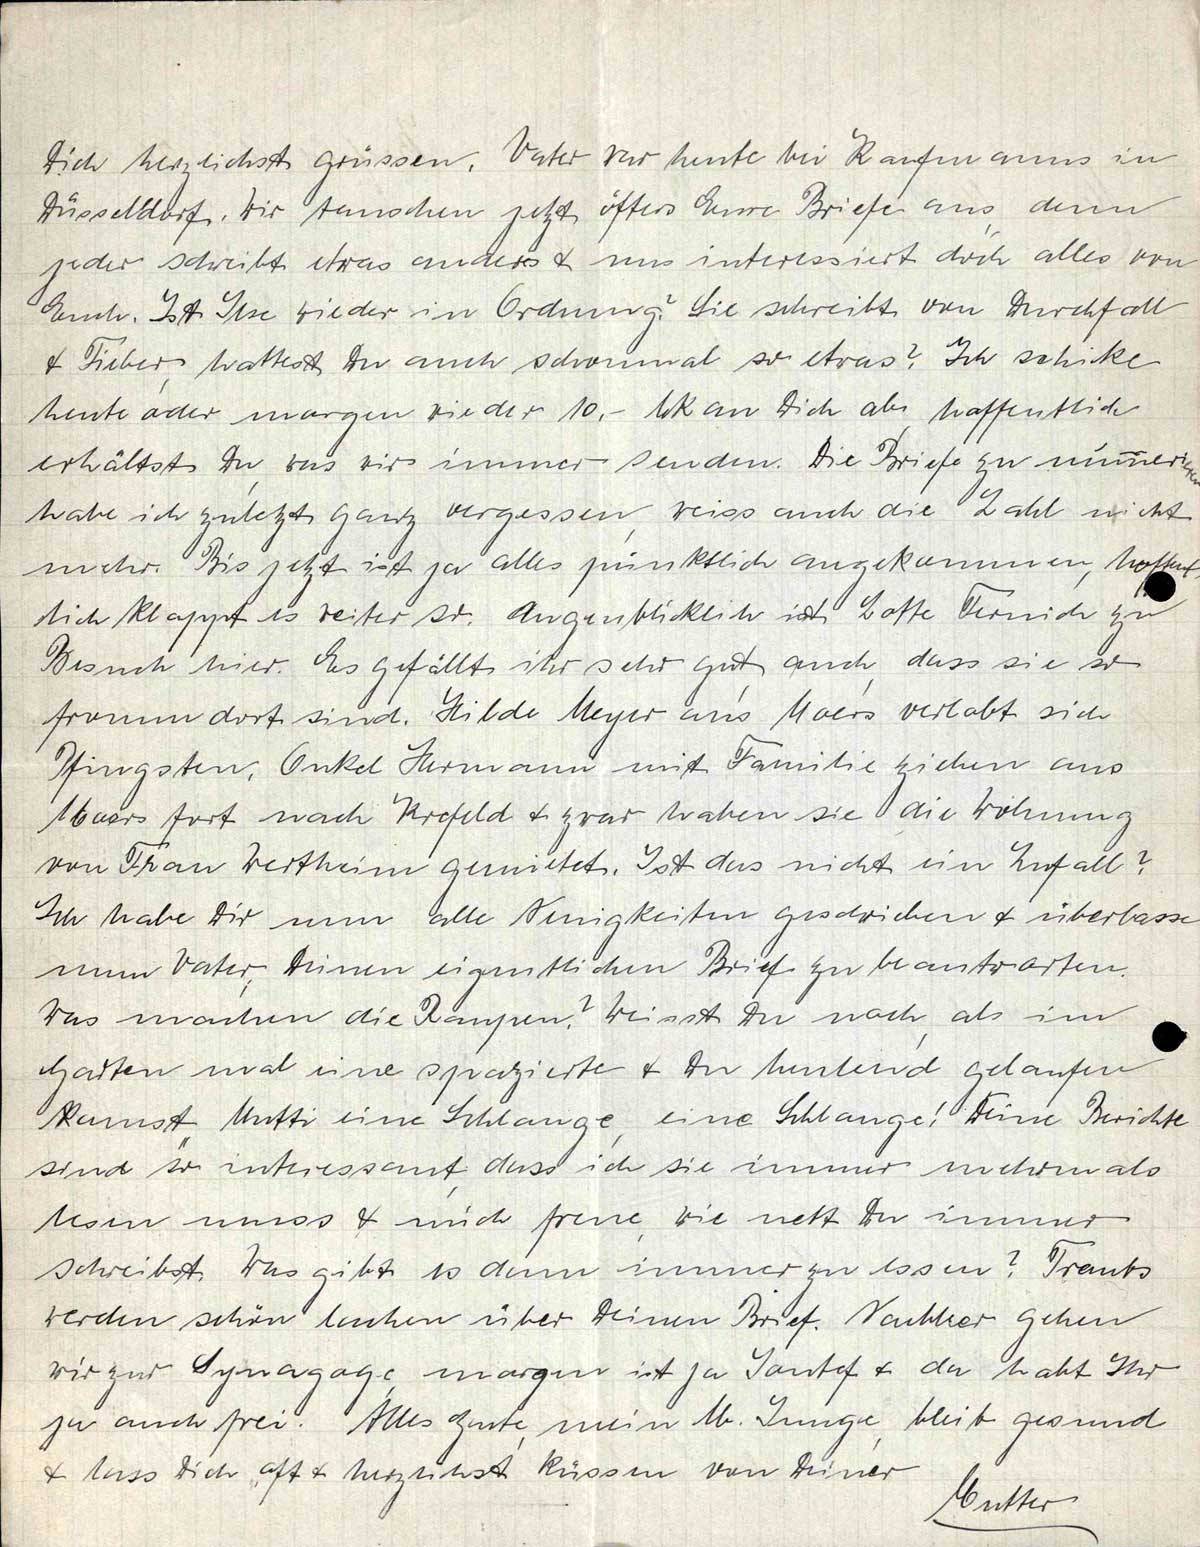 Dich herzlichst grüssen. Vater war heute bei Kaufmanns in
Düsseldorf. Wir tauschen jetzt öfters Eure Briefe aus, denn
jeder schreibt etwas anders & uns interessiert doch alles von
Euch. Ist Ilse wieder in Ordnung? Sie schreibt von Durchfall
& Fieber, hattest Du auch schonmal so etwas? Ich schicke
heute oder morgen wieder 10,- Mk an Dich ab, hoffentlich
erhältst Du, was wir immer senden. Die Briefe zu numerieren
habe ich zuletzt ganz vergessen, weiss auch die Zahl nicht
mehr. Bis jetzt ist ja alles pünktlich angekommen, hoffent
lich klappt es weiter so. Augenblicklich ist Lotte Fernich zu
Besuch hier. Es gefällt ihr sehr gut, auch, dass sie so
fromm dort sind. Hilde Meyer aus Moers verlobt sich
Pfingsten, Onkel Hermann mit Familie ziehen aus
Moers fort nach Krefeld & zwar haben sie die Wohnung
von Frau Wertheim gemietet. Ist das nicht ein Zufall?
Ich habe Dir nun alle Neuigkeiten geschrieben & überlasse
nun Vater, Deinen eigentlichen Brief zu beantworten.
Was machen die Raupen? Weisst Du noch, als im
Garten mal eine spazierte & Du heulend gelaufen
kamst „Mutti eine Schlange, eine Schlange! Deine Berichte
sind so interessant, dass ich sie immer mehrmals
lesen muss & mich freue, wie nett Du immer
schreibst. Was gibt es denn immer zu essen? Traubs
werden schön lachen über Deinen Brief. Nachher gehen
wir zur Synagoge, morgen ist ja Jontef & da habt Ihr
ja auch frei. Alles Gute, mein lb. Junge, bleib gesund
& lass Dich oft & herzlichst küssen von Deiner
Mutter